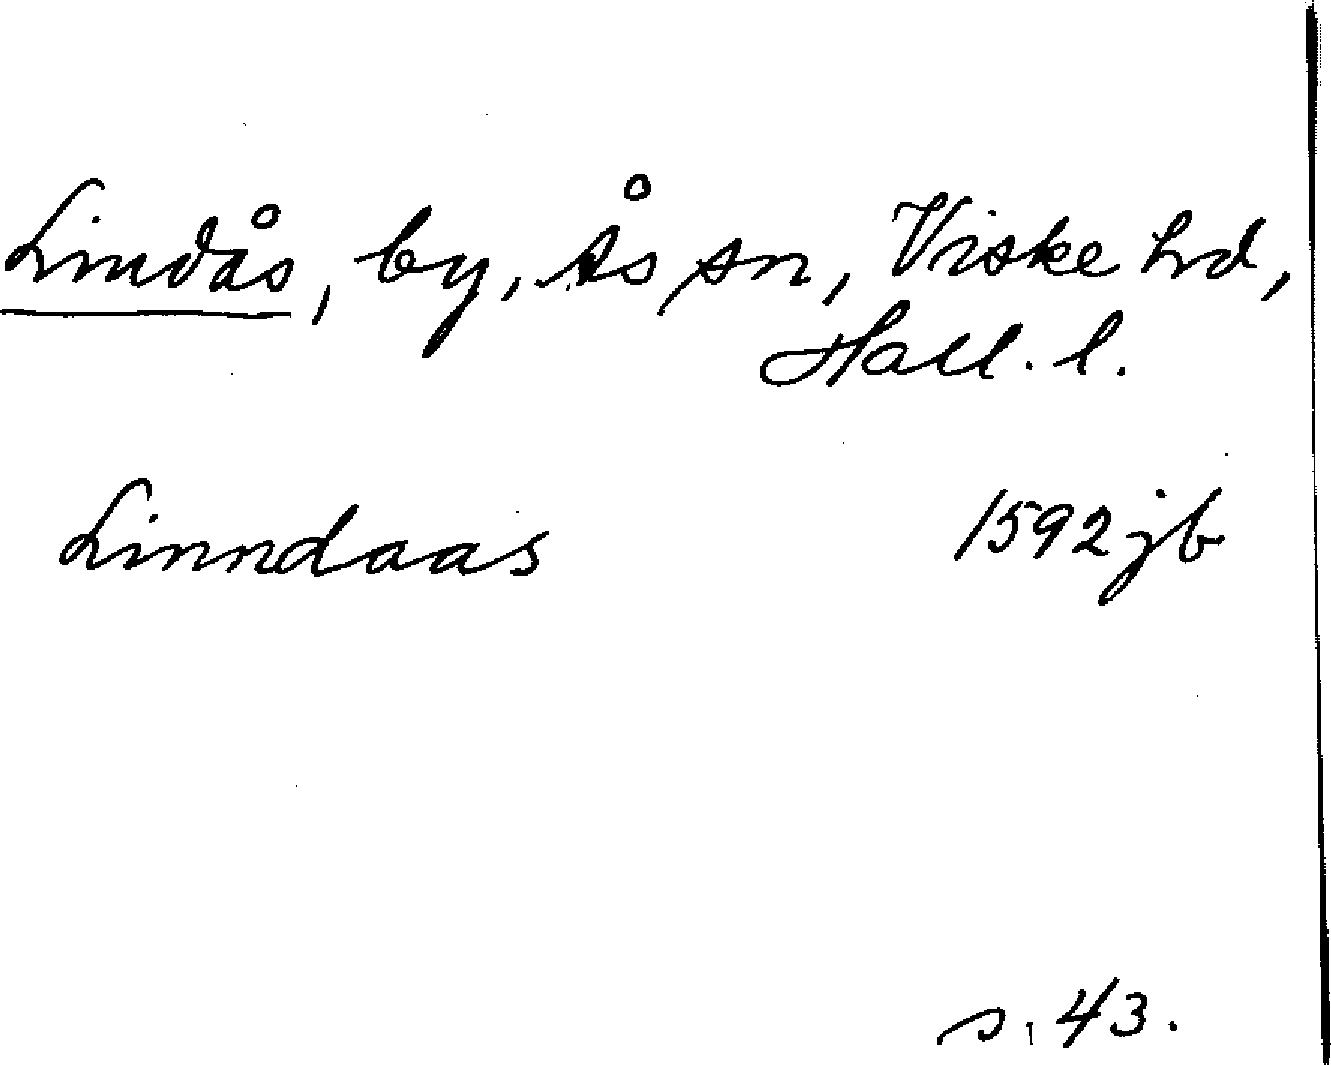 Lindås, by, Ås sn, Viske hd,
Hall. l.
Linndaas 1592 jb
s. 43.